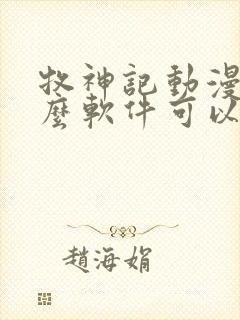 牧神記動漫
麼軟件可以
趙海娟